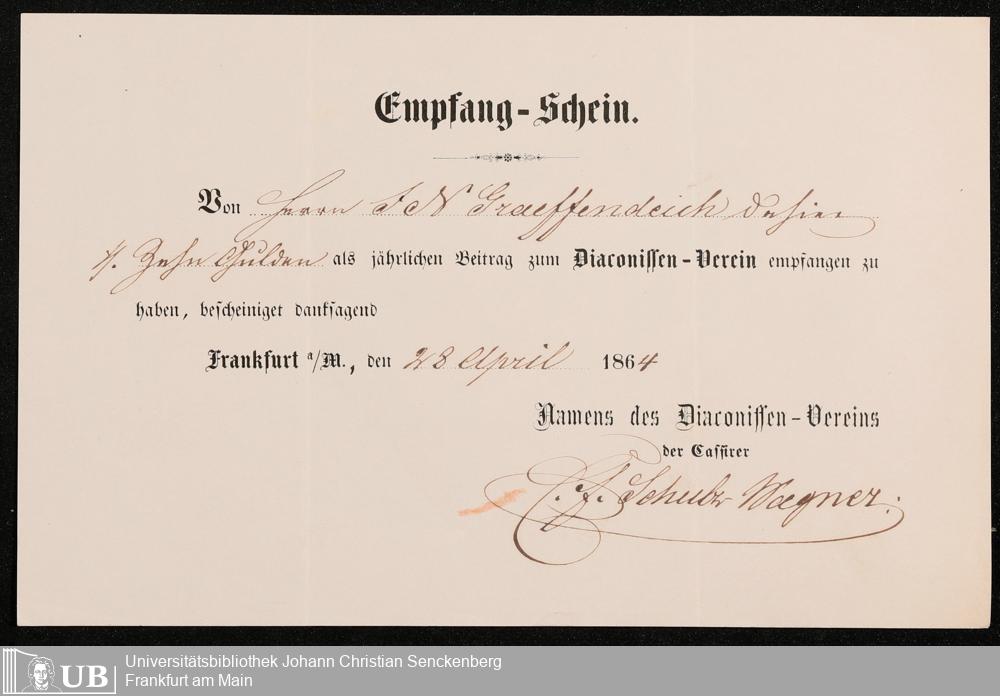 Empfang-Schein.
Von Herrn J N Graeffendeich dahier
f. Zehn Gulden als jährlichen Beitrag zum Diaconissen-Verein empfangen zu
haben, bescheiniget danksagend
Frankfurt a/M., den 28 April 1864
Namens des Diaconissen-Vereins
der Cassirer
Schulz Wagner.
UB
Universitätsbibliothek Johann Christian Senckenberg
Frankfurt am Main